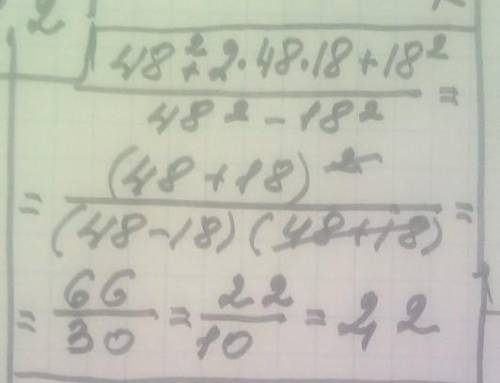 2
48²+2·48·18+18²
48²-18² =
= (48+18)²
(48-18)(48+18) =
= 66/30 = 22/10 = 2,2